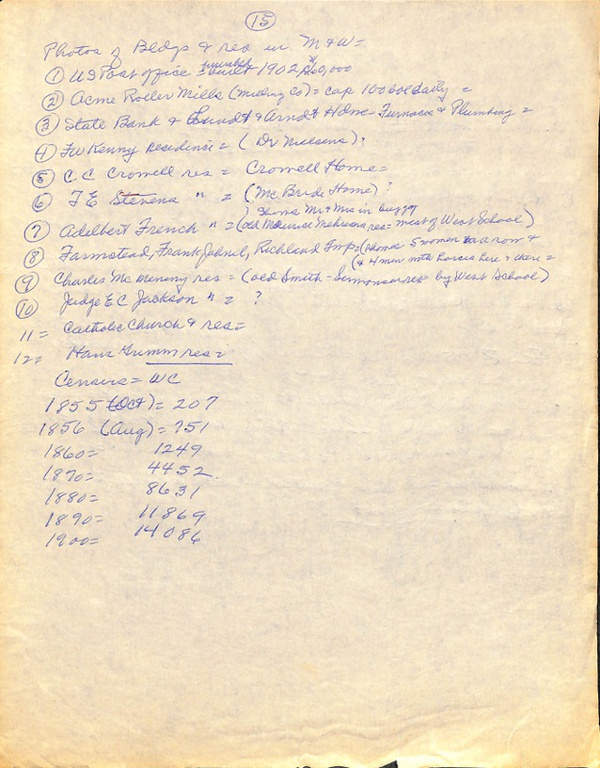 15
Photos of Bldgs & res in M & W =
① US Post office = built 1902 $60,000
② Acme Roller Mills (Milling Co) = cap 100 bbl daily =
③ State Bank & Lundt & Arndt Hdwe - Furnaces & Plumbing =
④ FW Kenny Residence = (Dr Nielsens)?
⑤ C C Crowell res = Crowell Home =
⑥ F E Stevens " = (McBride Home)?
) Shows Mr & Mrs in buggy
⑦ Adelbert French " = (old res = west of West School)
⑧ Farmstead, Frank Jahnel, Richland Twp = (shows 5 women in a row &
(& 4 men with horses here & there =
⑨ Charles McMening res = (old Smith - Simonson res by West School)
⑩ Judge E C Jackson " = ?
11 = Catholic Church & res =
12 = Hans Grimm res =
Census = WC
1855 (Oct) = 207
1856 (Aug) = 751
1860 = 1249
1870 = 4452
1880 = 8631
1890 = 11869
1900 = 14086